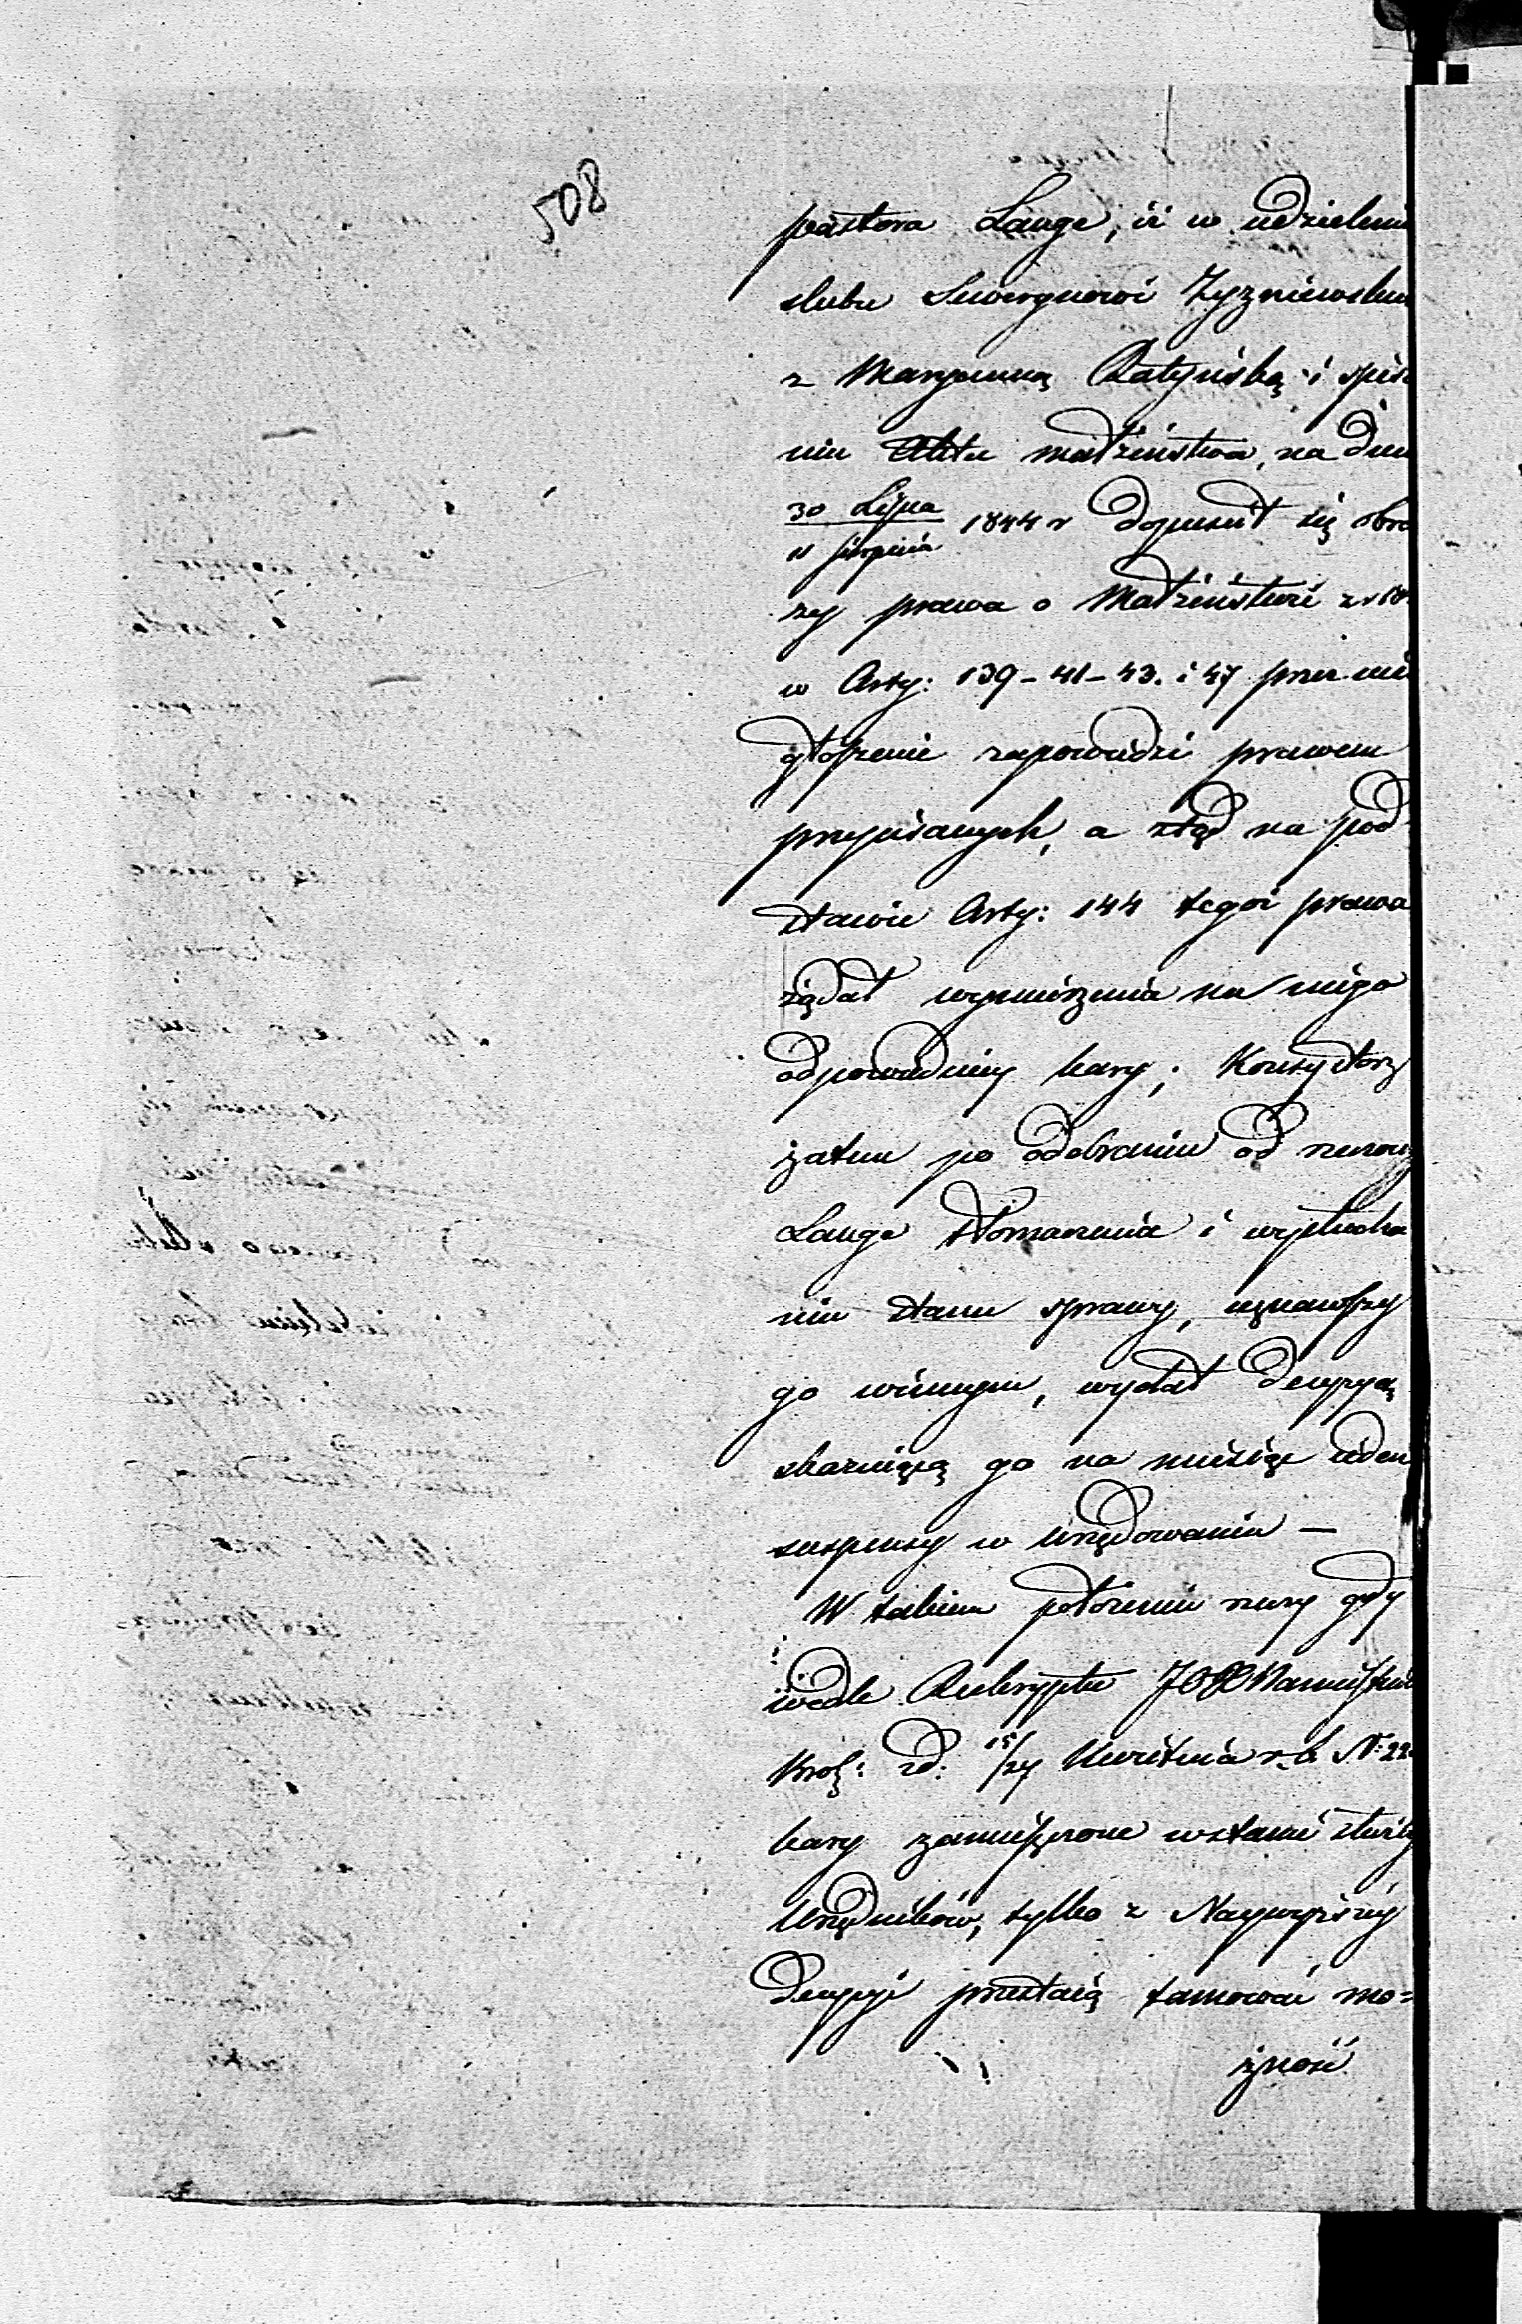 508
pastora Lange, iż w udzieleniu
slubu Sewerynowi Zyzniewskiem
z Maryanną Ratyńską i spisa
niu Aktu małżeństwa, na dniu
30 Lipca
11 Sierpnia 1844 r dopuścił się obra
zy prawa o Małżeństwie z r 18
w Arty: 139-41-43. i 47 przez nie
głoszenie zapowiedzi prawem
przepisanych, a ztąd na pod
stawie Arty: 144 tegoż prawa
żądał wymierzenia na niego
odpowiedniey kary; Konsystorz
zatem po odebraniu od
Lange tłomaczenia i wysłucha
niu stanu sprawy, uznawszy
go winnym, wydał decyzyą
skazuiącą go na miesiąc ieden
suspensy w urzędowaniu —
W takiem położeniu rzeczy gdy
wedle Reskryptu JOX Namiestnika
Król: zd: 15/27 Kwietnia r. b. N: 22
kary zamieszczone w stanie służby
Urzędników, tylko z Naywyższey
decyzyi przestaią tamować mo=
żność